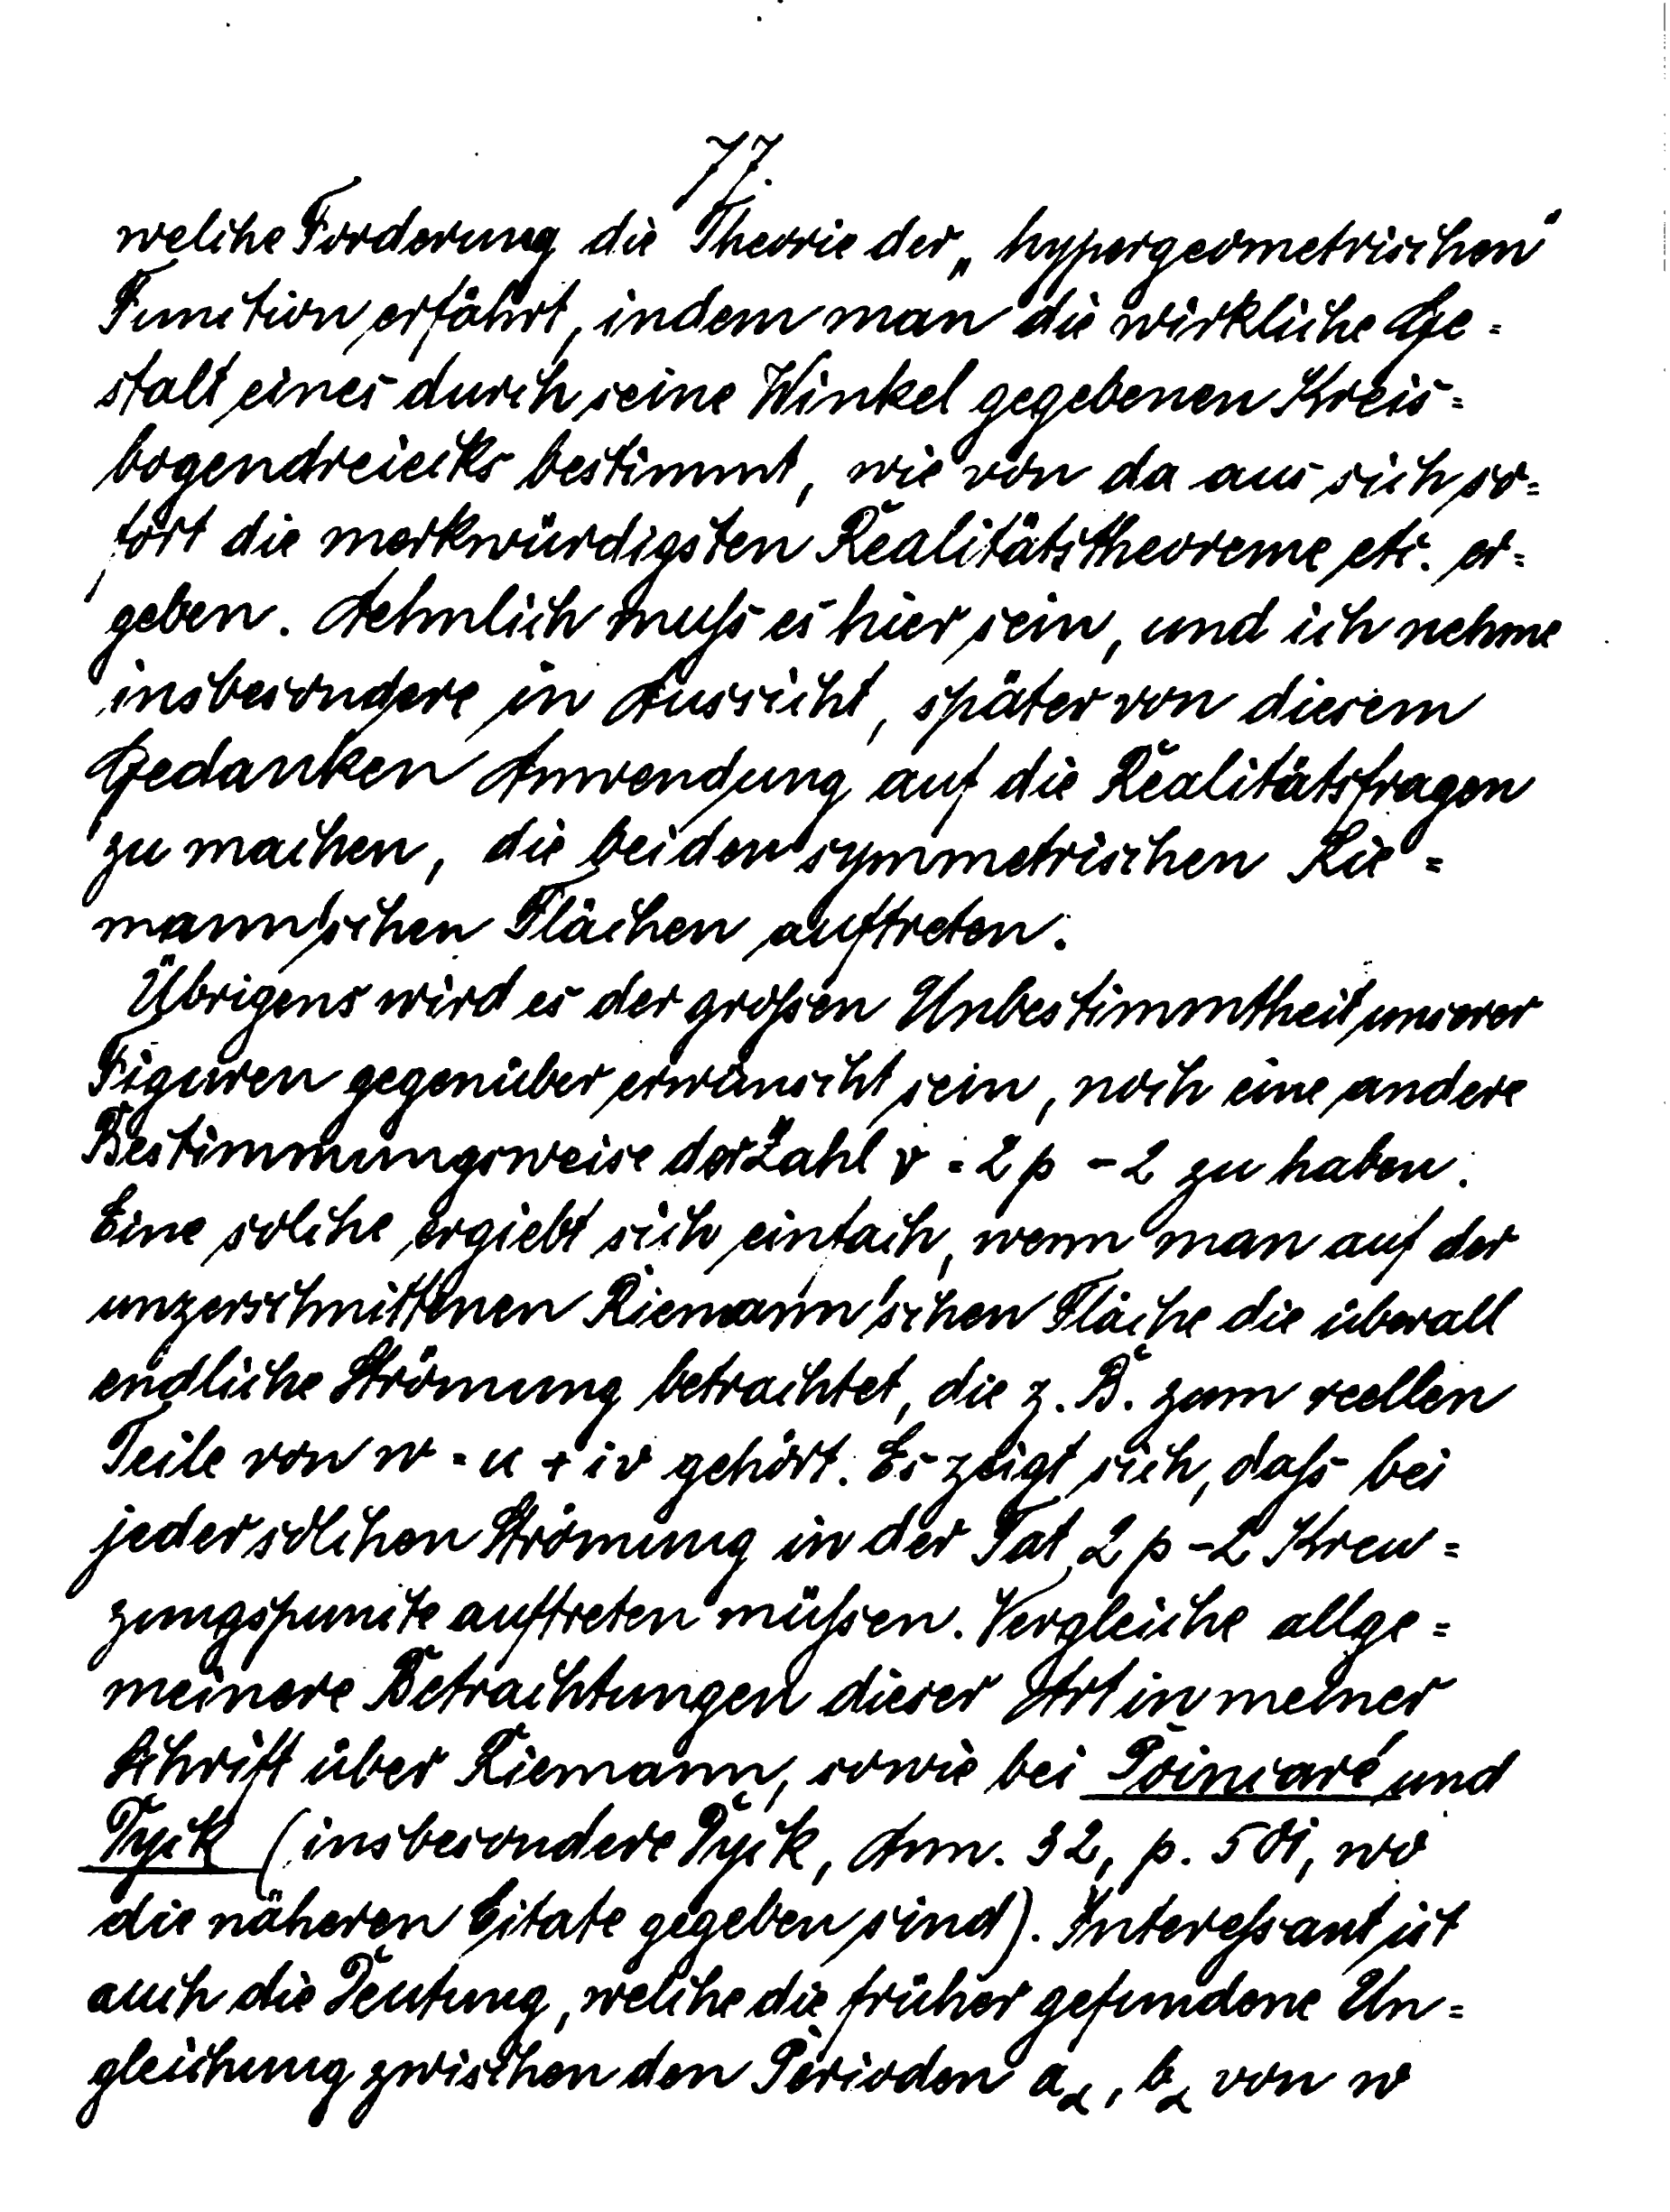 77.
welche Forderung die Theorie der „hypergeometrischen"
Function erfährt, indem man die wirkliche Ge=
stalt eines durch seine Winkel gegebenen Kreis=
bogendreiecks bestimmt, wie von da aus sich so=
fort die merkwürdigsten Realitätstheoreme etc. er=
geben. Aehnlich muſs es hier sein, und ich nehme
insbesondere in Aussicht, später von diesem
Gedanken Anwendung auf die Realitätsfragen
zu machen, die bei den symmetrischen Rie=
mann'schen Flächen auftreten.
Übrigens wird es der groſsen Unbestimmtheit unserer
Figuren gegenüber erwünscht sein, noch eine andere
Bestimmungsweise der Zahl v = 2p - 2 zu haben.
Eine solche ergiebt sich einfach, wenn man auf der
unzerschnittenen Riemann'schen Fläche die überall
endliche Strömung betrachtet, die z. B. zum reellen
Teile von w = u + iv gehört. Es zeigt sich, daſs bei
jeder solchen Strömung in der Tat 2p-2 Kreu=
zungspuncte auftreten müſsen. Vergleiche allge=
meinere Betrachtungen dieser Art in meiner
Schrift über Riemann, sowie bei Poincaré und
Dyck (insbesondere Dyck, Ann. 32, p. 501, wo
die näheren Citate gegeben sind). Intereſsant ist
auch die Deutung, welche die früher gefundene Un=
gleichung zwischen den Perioden a_α, b_α von w